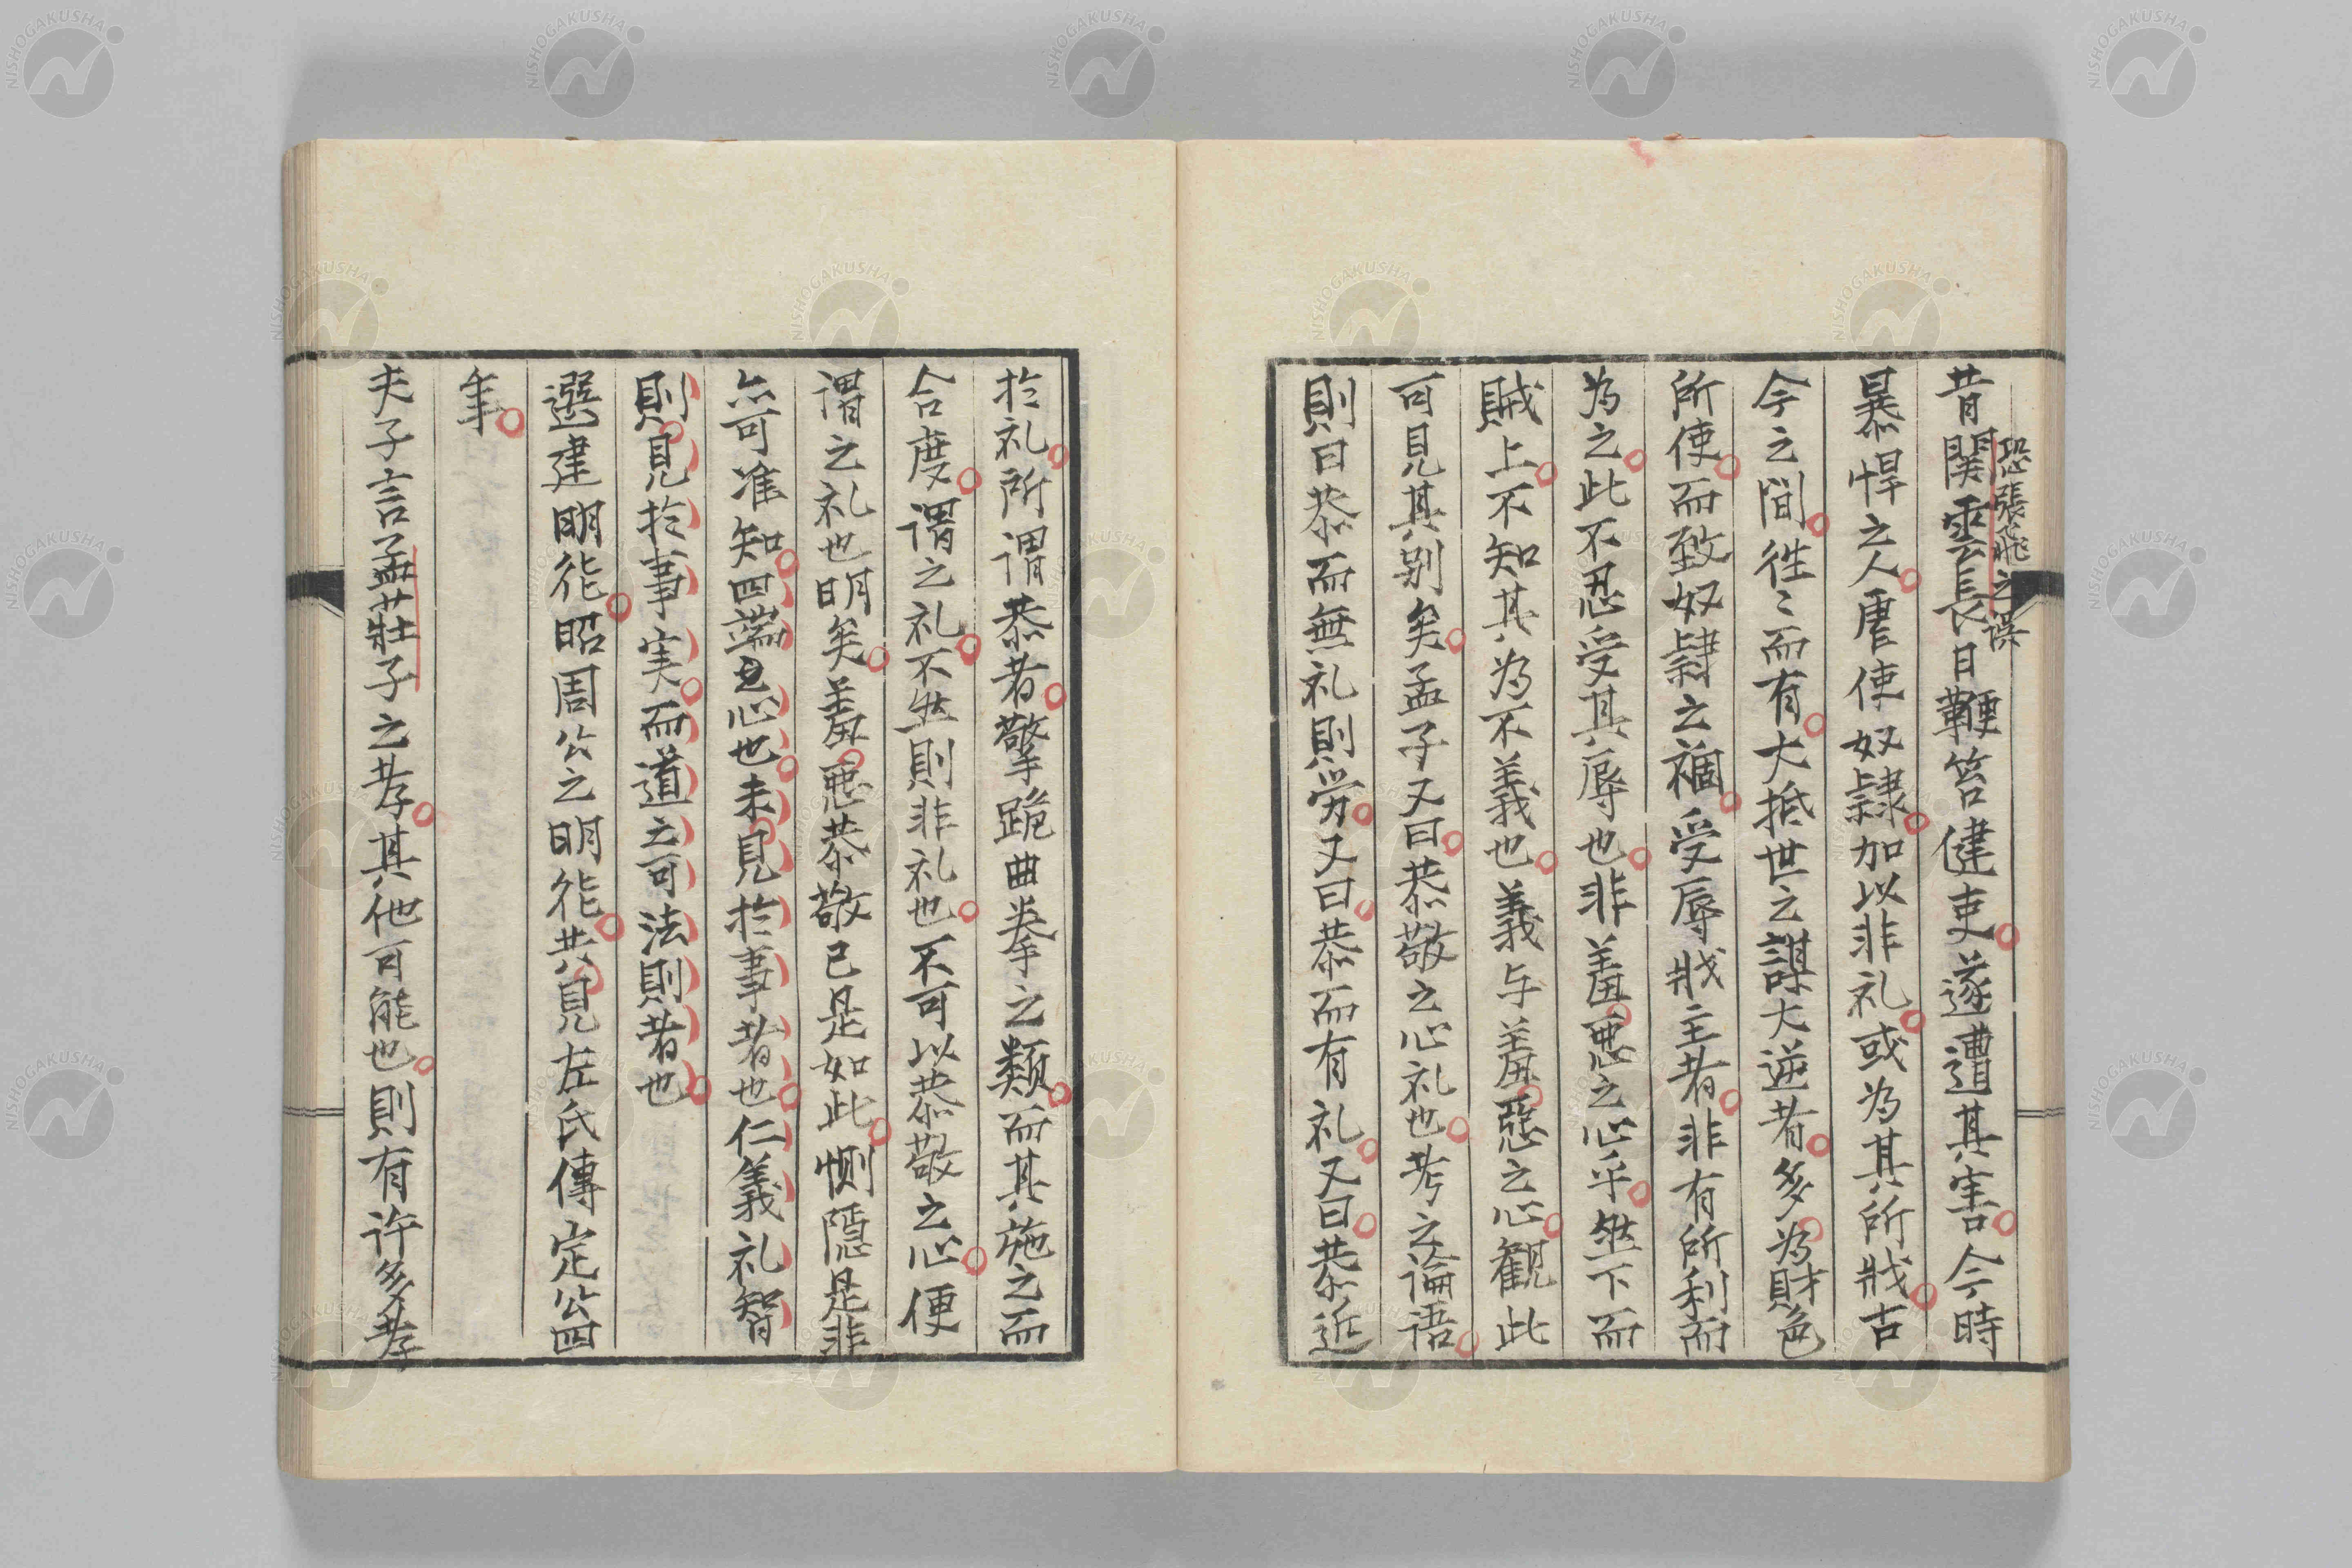 昔関雲長日鞭笞健吏遂遭其害今時
恐張飛之誤
暴悍之人虐使奴隷加以非礼或為其所戕古
今之間徃〻而有大抵世之謀大逆者多為財色
所使而致奴隷之禍受辱戕主者非有所利而
為之此不忍受其辱也非羞悪之心乎然下而
賊上不知其為不義也義与羞惡之心観此
可見其别矣孟子又曰恭敬之心礼也考之論語
則曰恭而無礼則労又曰恭而有礼又曰恭近
於礼所謂恭者擎跪曲拳之類而其施之而
合度謂之礼不然則非礼也不可以恭敬之心便
謂之礼也明矣羞悪恭敬已是如此惻隠是非
亦可准知四端之心也未見於事者也仁義礼智
則見於事実而道之可法則者也
選建明徳昭周公之明徳共見左氏傳定公四
年
夫子言孟荘子之孝其他可能也則有许多孝
NISHOGAKUSHA